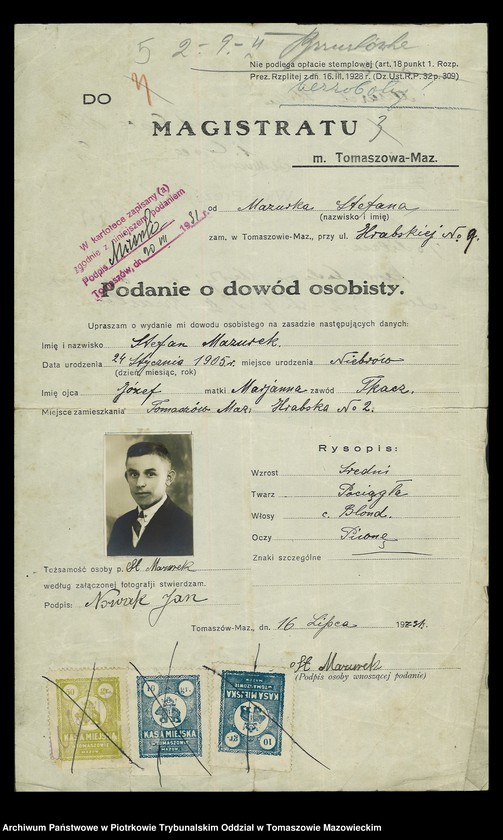 5 2-9-4
Nie podlega opłacie stemplowej (art. 18 punkt 1. Rozp.
Prez. Rzplitej z dn. 16. III. 1928 r. (Dz. Ust. R. P. 32 p. 309)
bezrobotny!
DO
MAGISTRATU
m. Tomaszowa-Maz.
W kartotece zapisany (a)
zgodnie z niniejszem podaniem
Podpis
Tomaszów, dn. 20 VII 1931 r.
od Mazurka Stefana
(nazwisko i imię)
zam. w Tomaszowie-Maz., przy ul. Hrabskiej No 9.
Podanie o dowód osobisty.
Upraszam o wydanie mi dowodu osobistego na zasadzie następujących danych:
Imię i nazwisko Stefan Mazurek.
Data urodzenia 24 Stycznia 1905 r. miejsce urodzenia Niebrów
(dzień, miesiąc, rok)
Imię ojca Józef matki Marjanna zawód Tkacz.
Miejsce zamieszkania Tomaszów Maz. Hrabska No 2.
Rysopis:
Wzrost Średni
Twarz Pociągła
Włosy c. Blond.
Oczy Piwne
Znaki szczególne
Tożsamość osoby p. St Mazurek
według załączonej fotografji stwierdzam.
Podpis: Nowak Jan
Tomaszów-Maz., dn. 16 Lipca
St Mazurek
(Podpis osoby wnoszącej podanie)
KASA MIEJSKA
W TOMASZOWIE
MAZOW.
KASA MIEJSKA
W TOMASZOWIE
MAZOW.
10 gr.
KASA MIEJSKA
W TOMASZOWIE
MAZOW.
Archiwum Państwowe w Piotrkowie Trybunalskim Oddział w Tomaszowie Mazowieckim